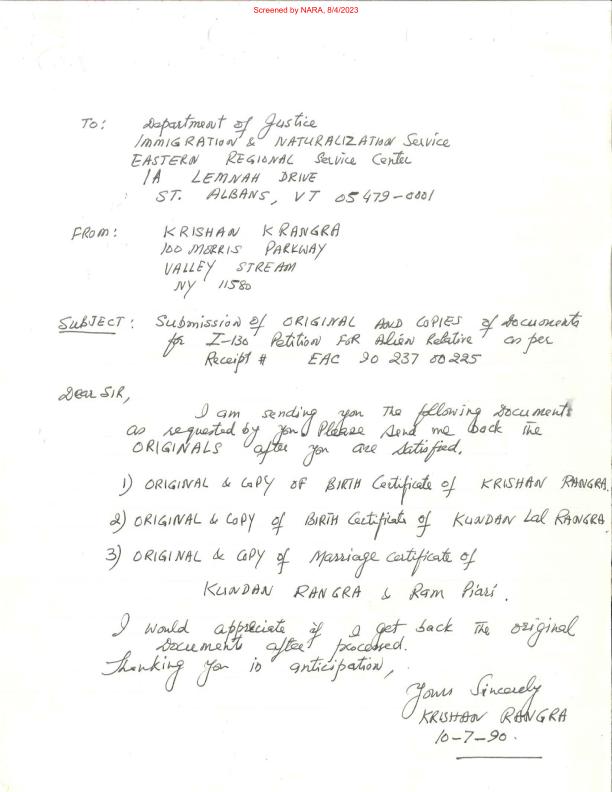 Screened by NARA, 8/4/2023
TO: Department of Justice
IMMIGRATION & NATURALIZATION Service
EASTERN REGIONAL Service Center
1A LEMNAH DRIVE
ST. ALBANS, VT 05479-0001
FROM: KRISHAN K RANGRA
100 MORRIS PARKWAY
VALLEY STREAM
NY 11580
SUBJECT: Submission of ORIGINAL AND COPIES of Documents
for I-130 Petition FOR Alien Relative as per
Receipt # EAC 90 237 00225
Dear SIR,
I am sending you The following Documents
as requested by you. Please send me back The
ORIGINALS after you are satisfied.
1) ORIGINAL & COPY OF BIRTH Certificate of KRISHAN RANGRA
2) ORIGINAL & COPY of BIRTH Certificate of KUNDAN Lal RANGRA
3) ORIGINAL & COPY of Marriage Certificate of
KUNDAN RANGRA & Ram Piari.
I would appreciate if I get back The original
Documents after processed.
Thanking you in anticipation,
Yours Sincerely
KRISHAN RANGRA
10-7-90.